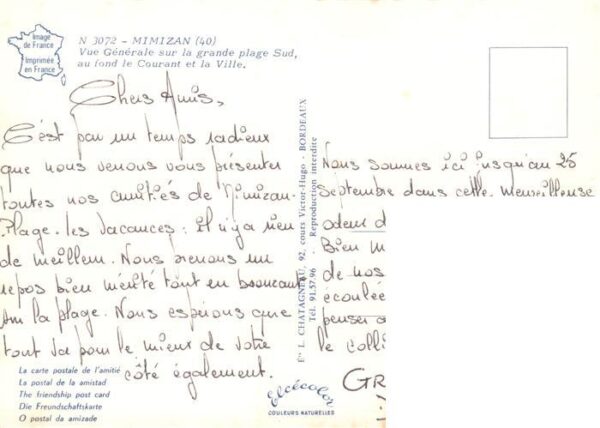 Image
de France
Imprimée
en France
N 3072 - MIMIZAN (40)
Vue Générale sur la grande plage Sud,
au fond le Courant et la Ville.
Chers Amis,
C'est par un temps radieux
que nous venons vous présenter
toutes nos amitiés de Mimizan-
Plage. les vacances : il n'y a rien
de meilleur. Nous prenons un
repos bien mérité tout en bronzant
sur la plage. Nous espérons que
tout va pour le mieux de votre
côté également.
La carte postale de l'amitié
La postal de la amistad
The friendship post card
Die Freundschaftskarte
O postal da amizade
Elcécolor
COULEURS NATURELLES
Ets L. CHATAGNEAU, 92, cours Victor-Hugo - BORDEAUX
Tél. 91.57.96 - Reproduction interdite
Nous sommes ici jusqu'au 25
Septembre dans cette merveilleuse
odeur d
Bien m
de nos
écoulée
penser a
le colli
GR